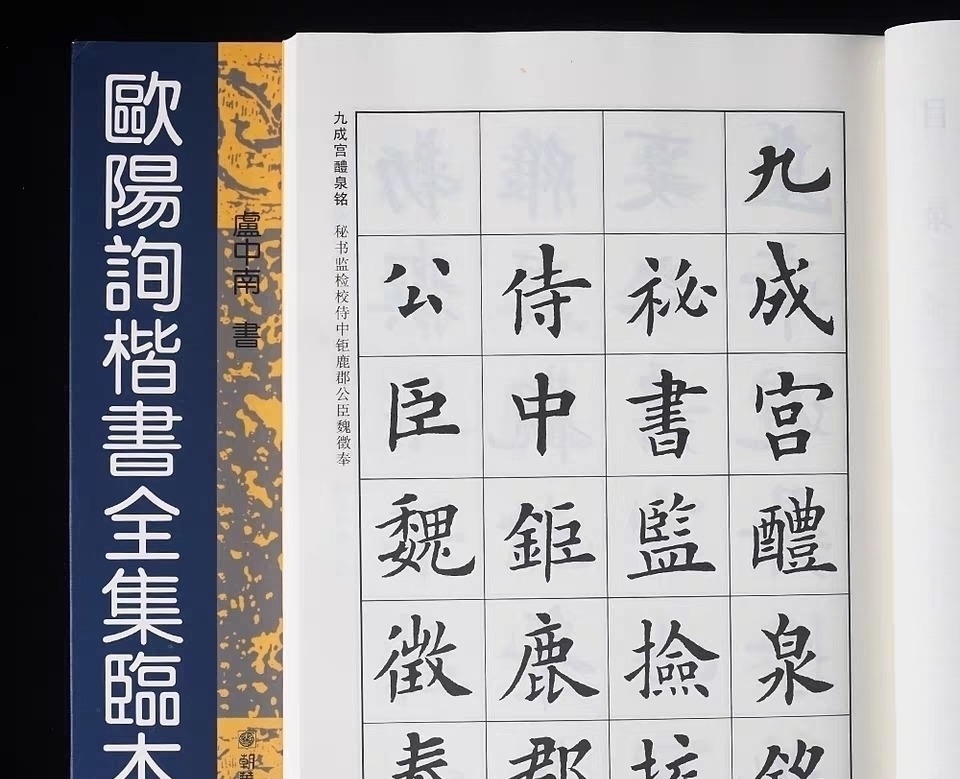 歐陽詢楷書全集臨本
盧中南 書
朝華
九成宫醴泉铭 秘书监检校侍中钜鹿郡公臣魏徵奉
九成宮醴泉銘
祕書監撿挍
侍中鉅鹿郡
公臣魏徵奉